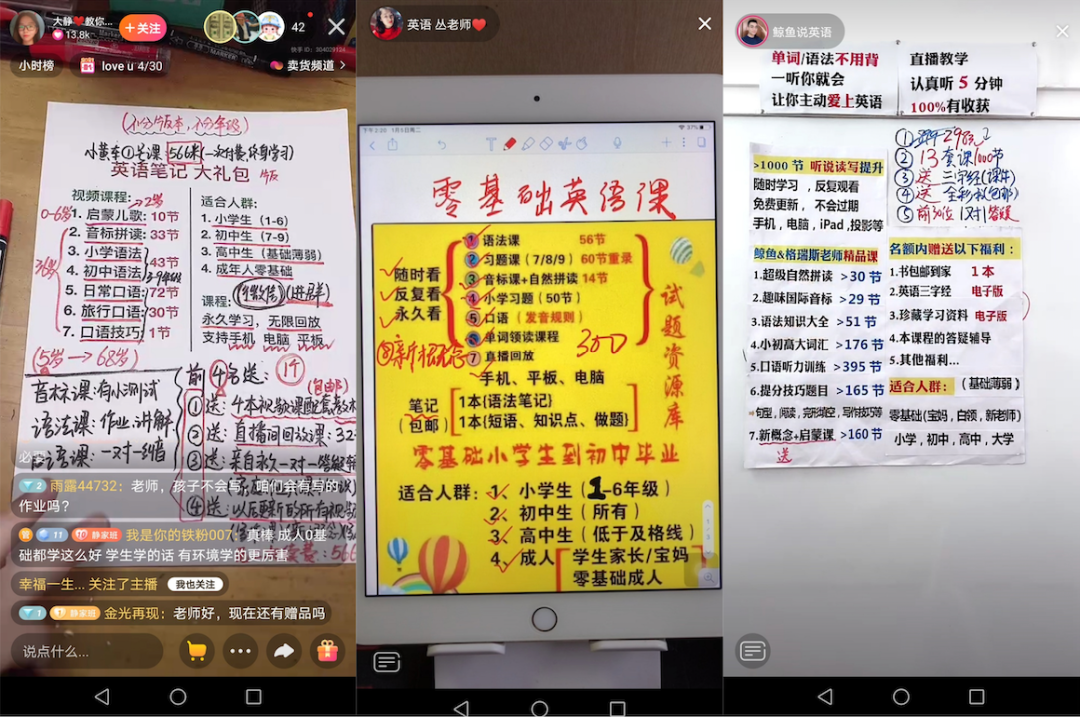 大静❤️教你...
13.8k
+关注
42
快手ID：304028124
小时榜
love u 4/30
卖货频道
(不分版本，不分年级)
小黄车①号课：566米(一次付费，终身学习)
英语笔记 大礼包
视频课程：
0-6岁
1. 启蒙儿歌：10节
2. 音标拼读：33节
3. 小学语法
4. 初中语法
43节
5. 日常口语：72节
6. 旅行口语：30节
7. 口语技巧：1节
(5岁→68岁)
适合人群：
1. 小学生（1-6）
2. 初中生（7-9）
3. 高中生（基础薄弱）
4. 成年人零基础
课程：
(进群)
永久学习，无限回放
支持手机 电脑 平板
音标课：有小测试
语法课：作业.讲解
口语课：一对一纠音
前4名送：
(包邮)
①送：4本视频课配套教材
②送：直播间回放课：32
③送：亲自永久一对一答疑
④送：以后更新的所有视频
雨露44732：老师，孩子不会写，咱们会有写的
作业吗？
11 10 静家班 我是你的铁粉007：真棒 成人0基
础都学这么好 学生学的话 有环境学的更厉害
幸福一生... 关注了主播 我也关注
1 静家班 金光再现：老师好，现在还有赠品吗
说点什么...
英语 丛老师❤️
下午2:20 1月5日周二
37%
零基础英语课
随时看
反复看
永久看
① 语法课 56节
② 习题课（7/8/9） 60节重录
③ 音标课+自然拼读 14节
④ 小学习题（50节）
⑤ 口语（发音规则）
⑥ 单词领读课程
⑦ 直播回放
⑧新概念
300
试题资源库
手机、平板、电脑
笔记
（包邮）
1本{语法笔记}
1本{短语、知识点、做题}
零基础小学生到初中毕业
适合人群：1、小学生（1-6年级）
2、初中生（所有）
3、高中生（低于及格线）
4、成人 学生家长/宝妈
零基础成人
鲸鱼说英语
单词/语法不用背
一听你就会
让你主动爱上英语
直播教学
认真听 5 分钟
100%有收获
>1000 节 听说读写提升
随时学习 ，反复观看
免费更新， 不会过期
手机，电脑，iPad ,投影等
② 13套课1000节
③ 送 三字经(课件)
⑤ 前30位 1对1答疑
鲸鱼&格瑞斯老师精品课
1.超级自然拼读 >30 节
2.趣味国际音标 >29 节
3.语法知识大全 >51 节
4.小初高大词汇 >176 节
5.口语听力训练 >395 节
6.提分技巧题目 >165 节
句型，阅读，完形填空，写作技巧等
7.新概念+启蒙课 >160 节
送
名额内赠送以下福利：
1.书包邮到家 1 本
2.英语三字经 电子版
3.珍藏学习资料 电子版
4.本课程的答疑辅导
5.其他福利...
适合人群：（基础薄弱）
零基础(宝妈，白领，新老师)
小学，初中，高中，大学